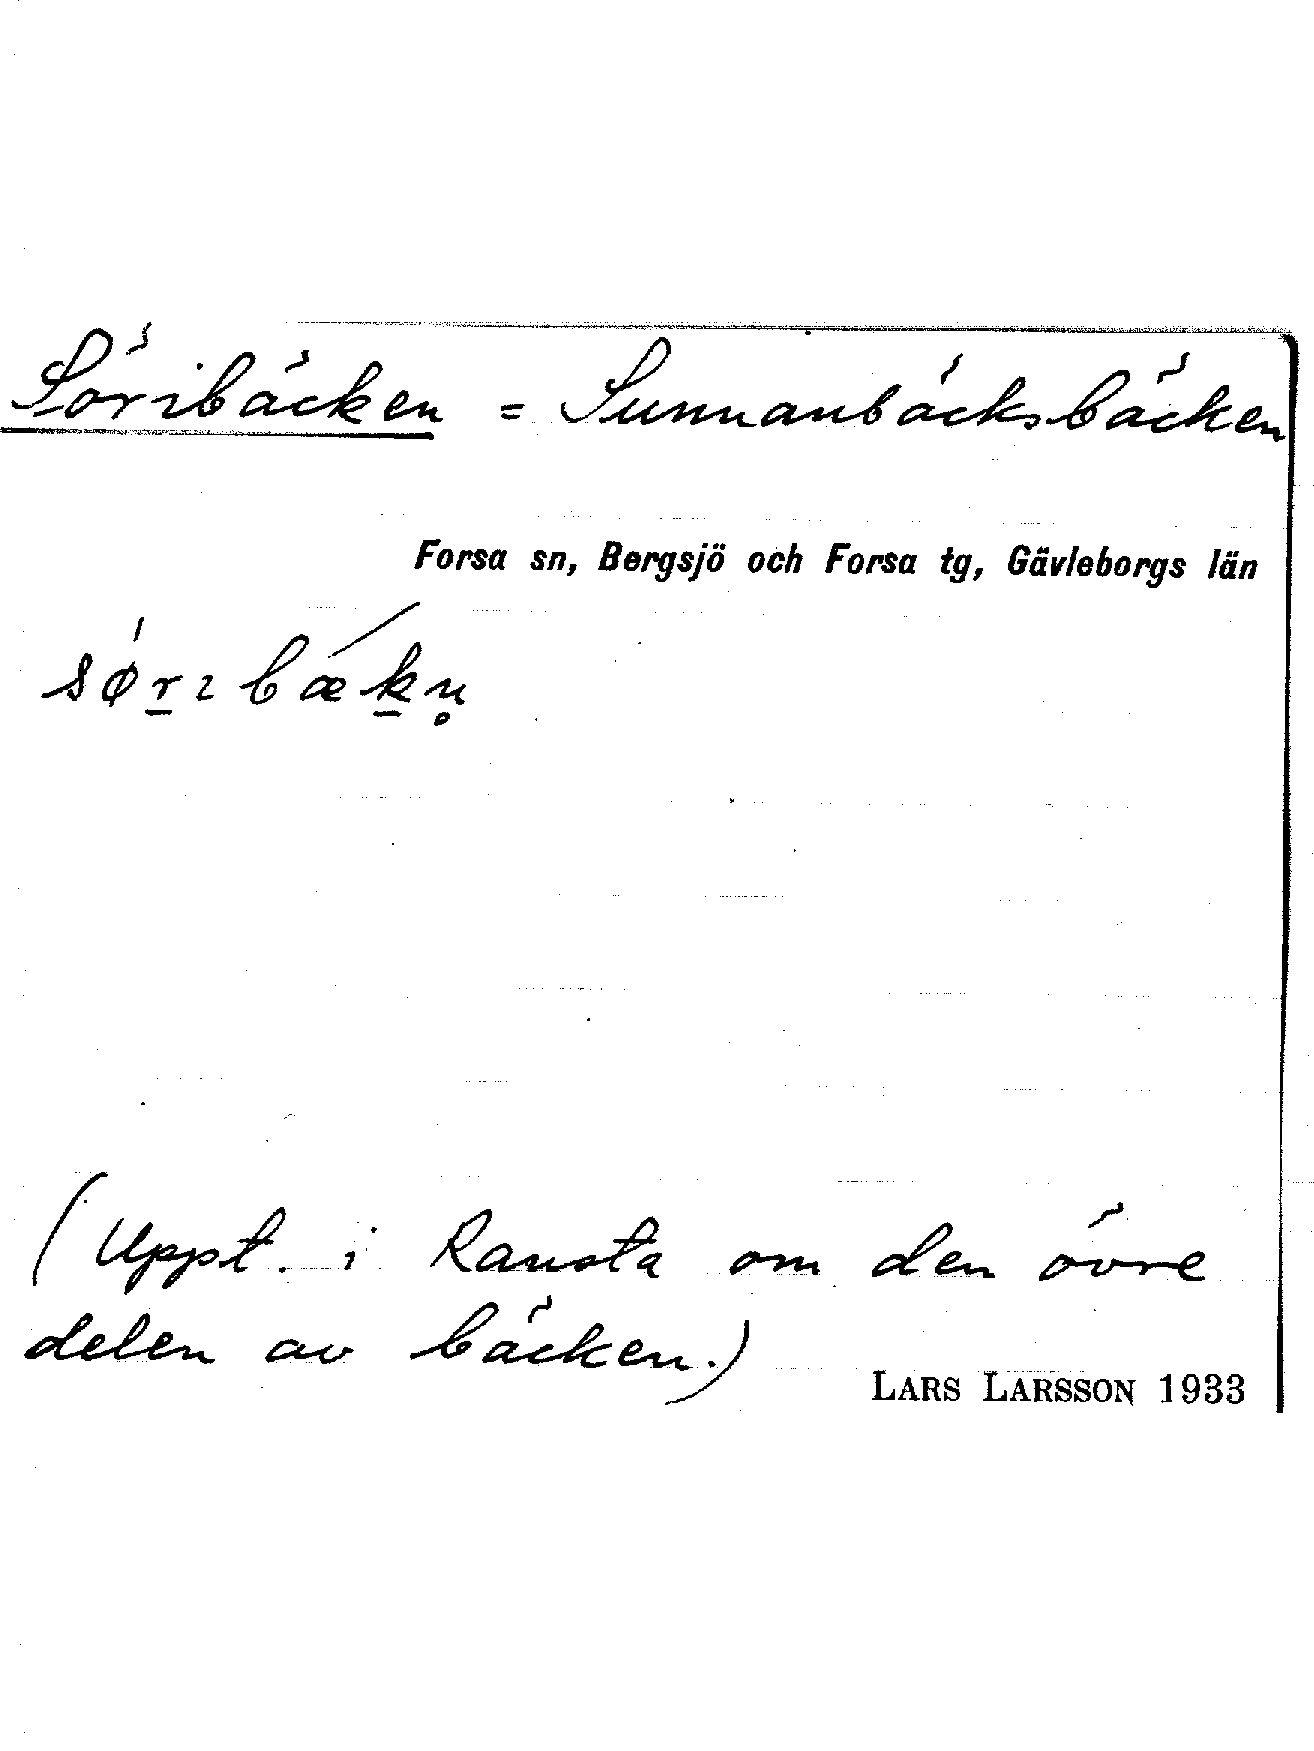 Söribäcken = Sunnanbäcksbäcken
Forsa sn, Bergsjö och Forsa tg, Gävleborgs län
sø̀rɪbækn̥
(Uppt. i Ransta om den övre
delen av bäcken.)
LARS LARSSON 1933